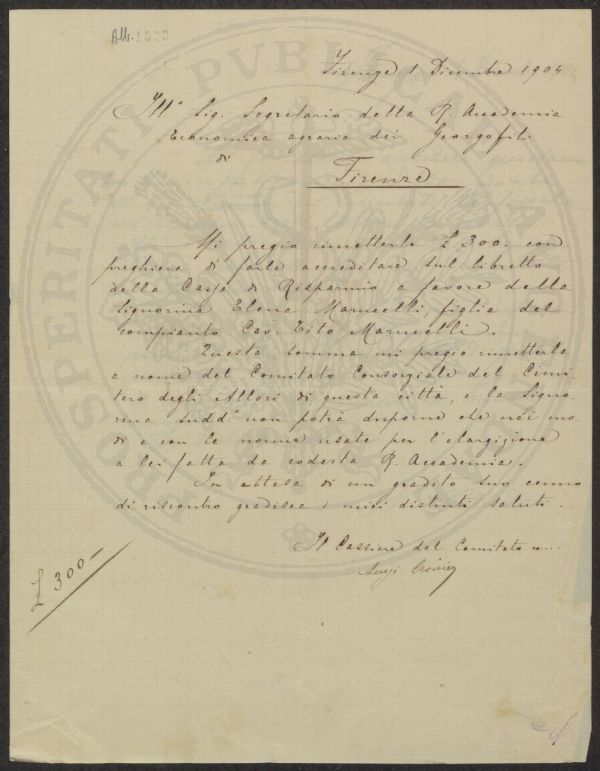 Firenze 1 Dicembre 1904
Ill.º Sig. Segretario della R. Accademia
Economica agraria dei Georgofili
di
Firenze
Mi pregio rimetterle £ 300.- con
preghiera di farle accreditare sul libretto
della Cassa di Risparmio a favore della
Signorina Elena Marucelli, figlia del
compianto Cav. Tito Marucelli.
Questa somma mi pregio rimetterla
a nome del Comitato Consorziale del Cimi-
tero degli Allori di questa città, e la Signo-
rina sudd.ª non potrà disporne che nei mo-
di e con le norme usate per l'elargizione
a lei fatta da codesta R. Accademia.
In attesa di un gradito suo cenno
di riscontro gradisca i miei distinti saluti.
Il Cassiere del Comitato
Luigi
£ 300-
PROSPERITATI PUBLICAE